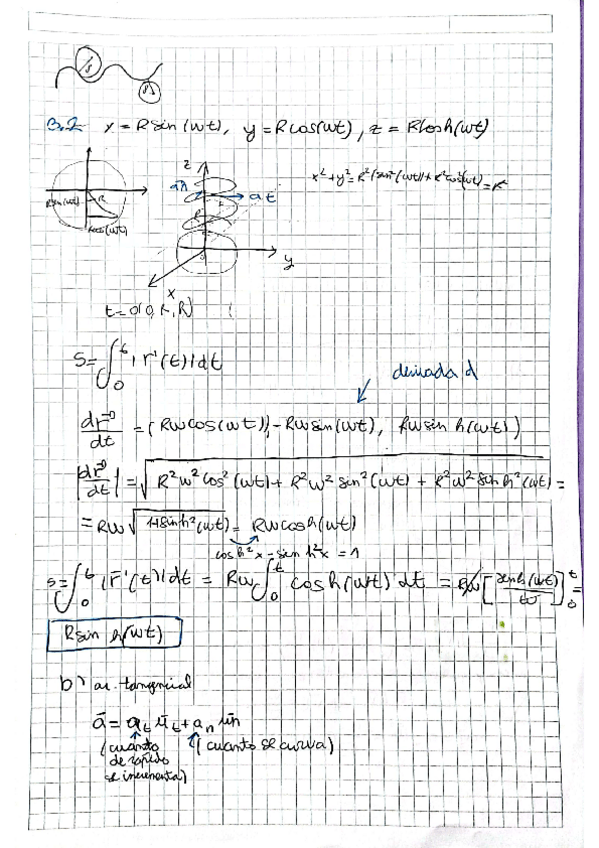 B.2 x = R sin(wt), y = R cos(wt), z = R cosh(wt)
x² + y² = R² sin²(wt) + R² cos²(wt) = R²
z
R sin(wt)
R
a t
R cos(wt)
y
x
t=0 (0, R, R)
S = ∫₀ᵗ |r'(t)| dt
derivada d
dr/dt = (Rw cos(wt), -Rw sin(wt), Rw sin h(wt))
|dr/dt| = √(R²w² cos²(wt) + R²w² sin²(wt) + R²w² sinh²(wt)) =
= Rw √(1+sinh²(wt)) = Rw cosh(wt)
cosh²x - sin h²x = 1
s = ∫₀ᵗ |r'(t)| dt = Rw ∫₀ᵗ cosh(wt) dt = Rw [senh(wt)/w]₀ᵗ =
R sin h(wt)
b) ac. tangencial
ā = a_t ū_t + a_n ūn
(cuanto de rápido se incrementa)
(cuanto se curva)